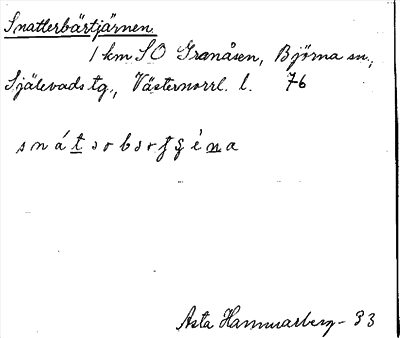 Snatterbärtjärnen
1 km SO Granåsen, Björna sn.,
Själevads tg., Västernorrl. l. 76
Asta Hammarberg - 33